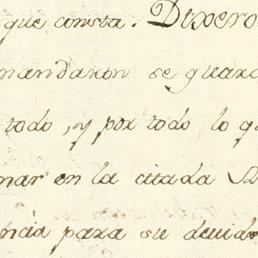 que consta. Dixero
mandaron se guarc
todo, y por todo lo q
nar en la citada
ncia para su deuido